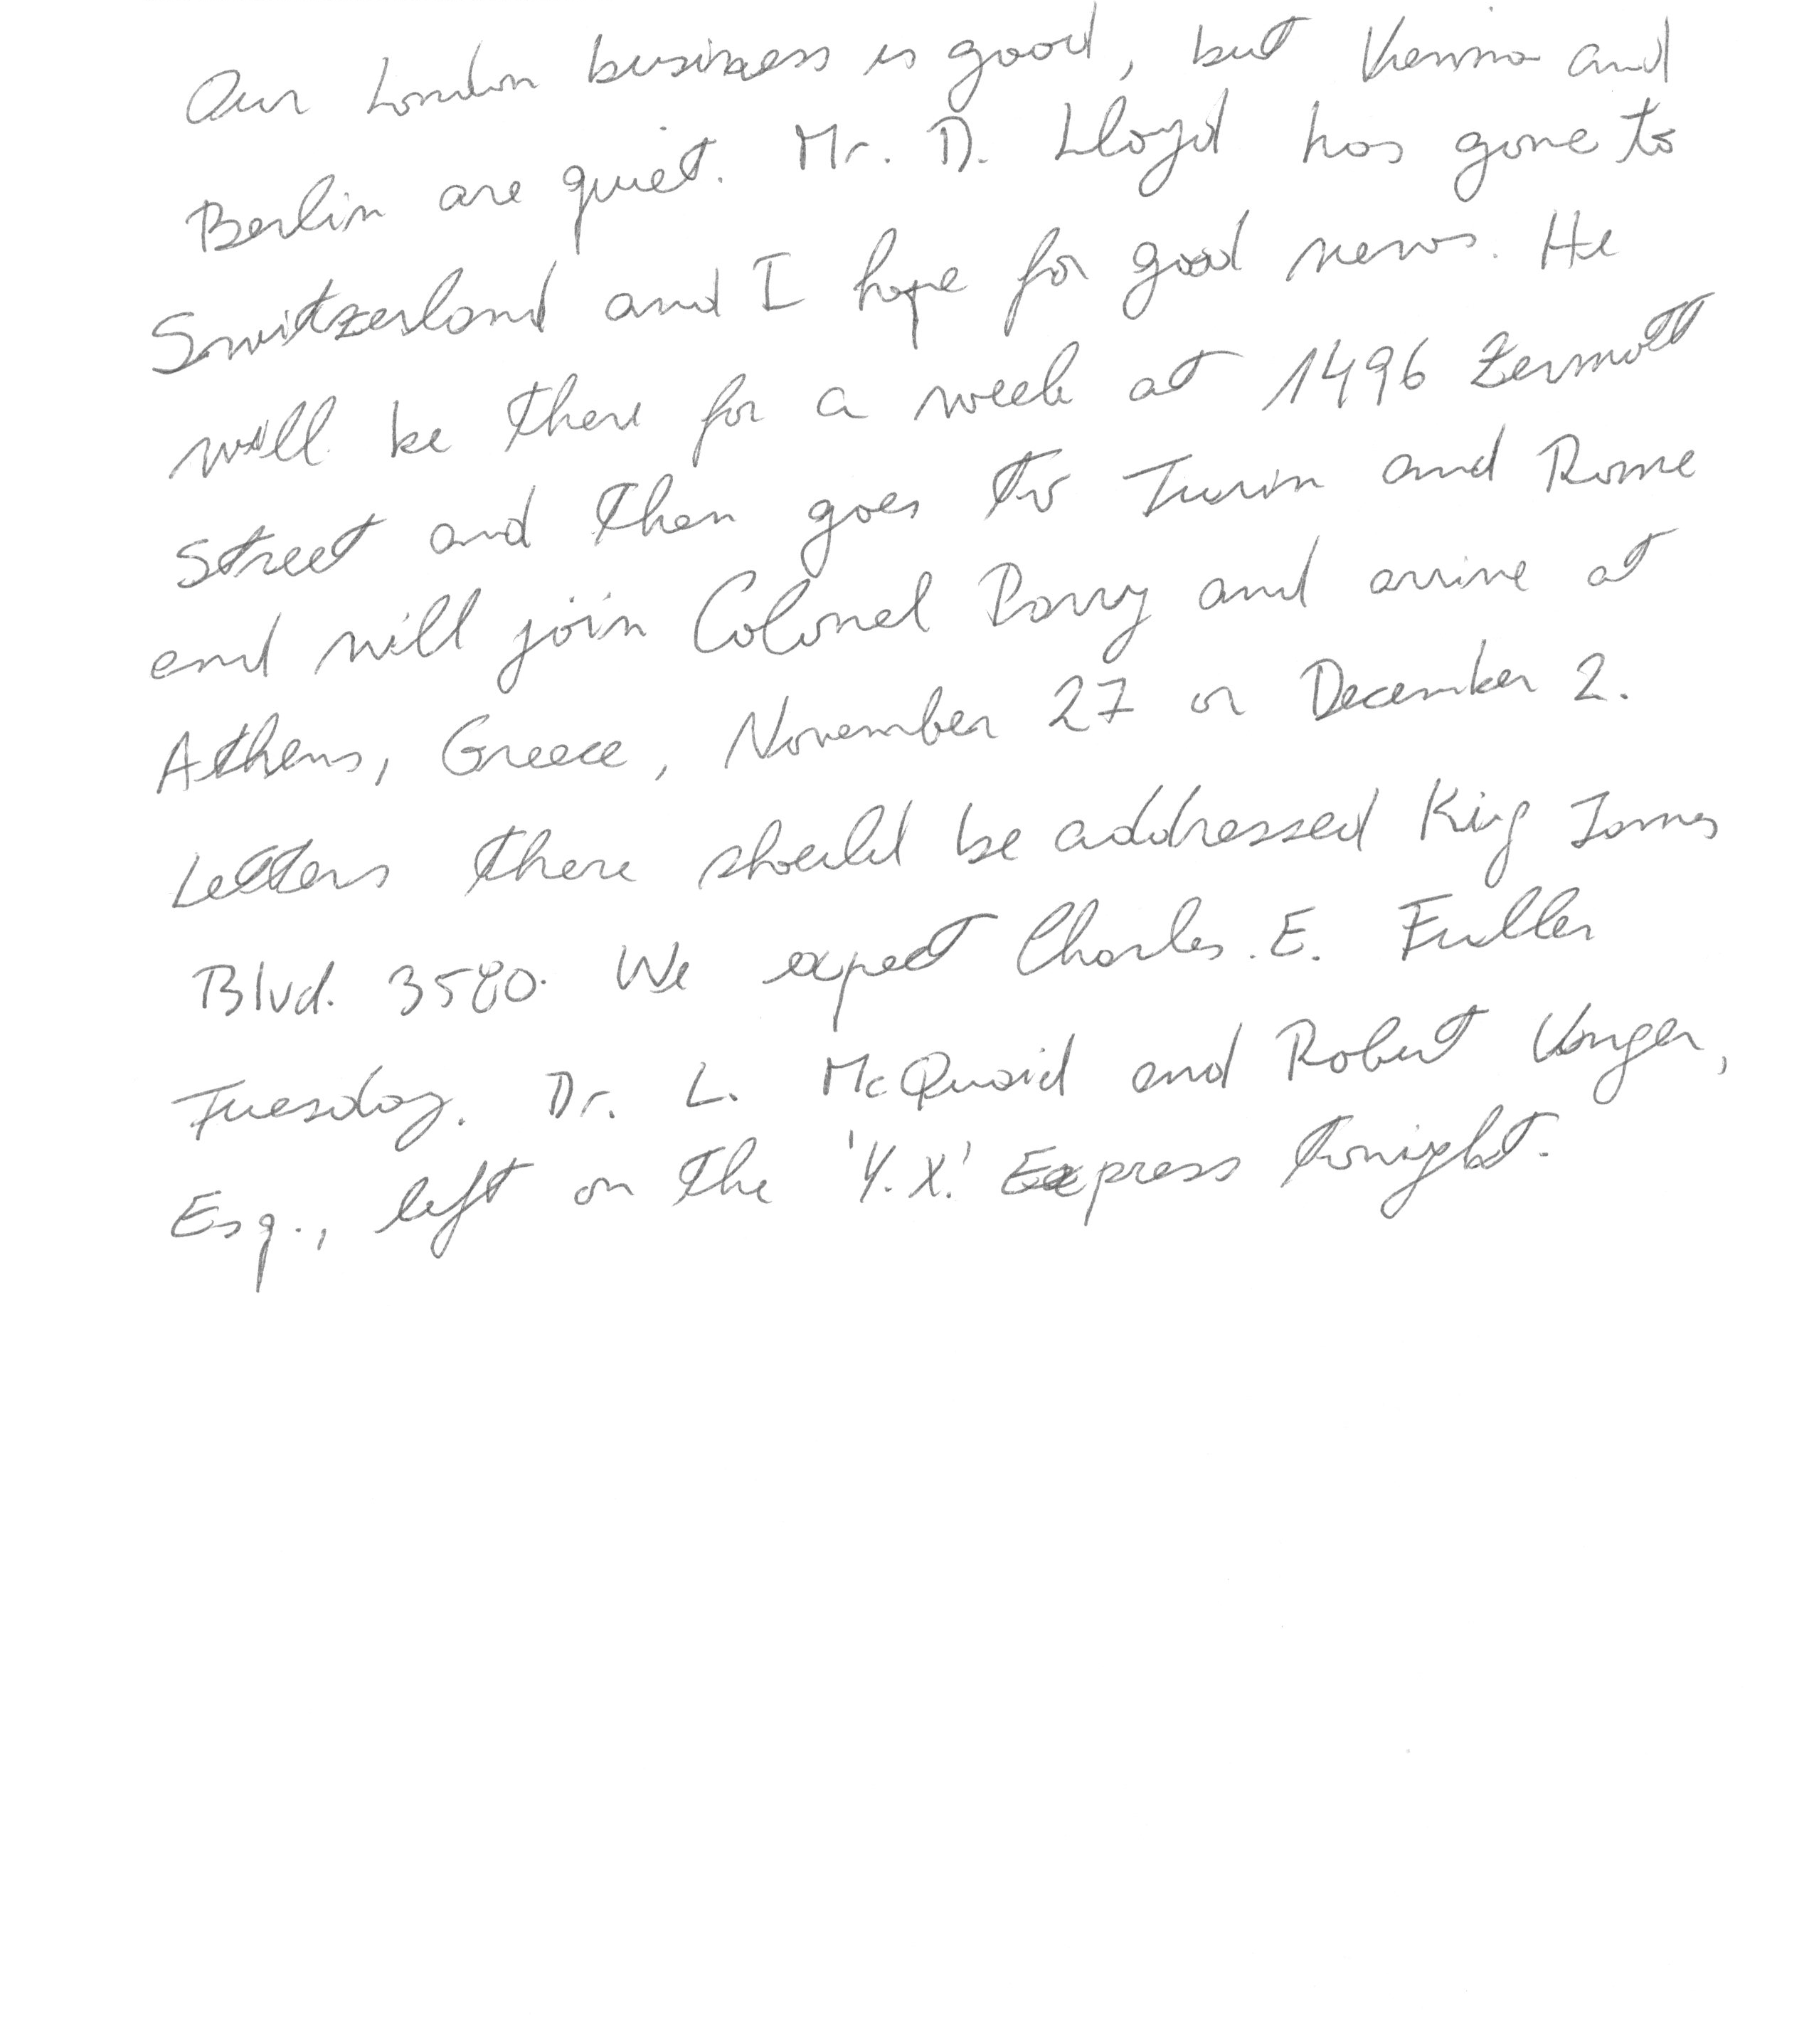 Our London business is good, but Vienna and
Berlin are quiet. Mr. D. Lloyd has gone to
Switzerland and I hope for good news. He
will be there for a week at 1496 Zermott
Street and then goes to Turin and Rome
and will join Colonel Parry and arrive at
Athens, Greece, November 27 or December 2.
Letters there should be addressed King James
Blvd. 3580. We expect Charles. E. Fuller
Tuesday. Dr. L. McQuaid and Robert Unger,
Esq., left on the 'Y.X.' Express tonight.